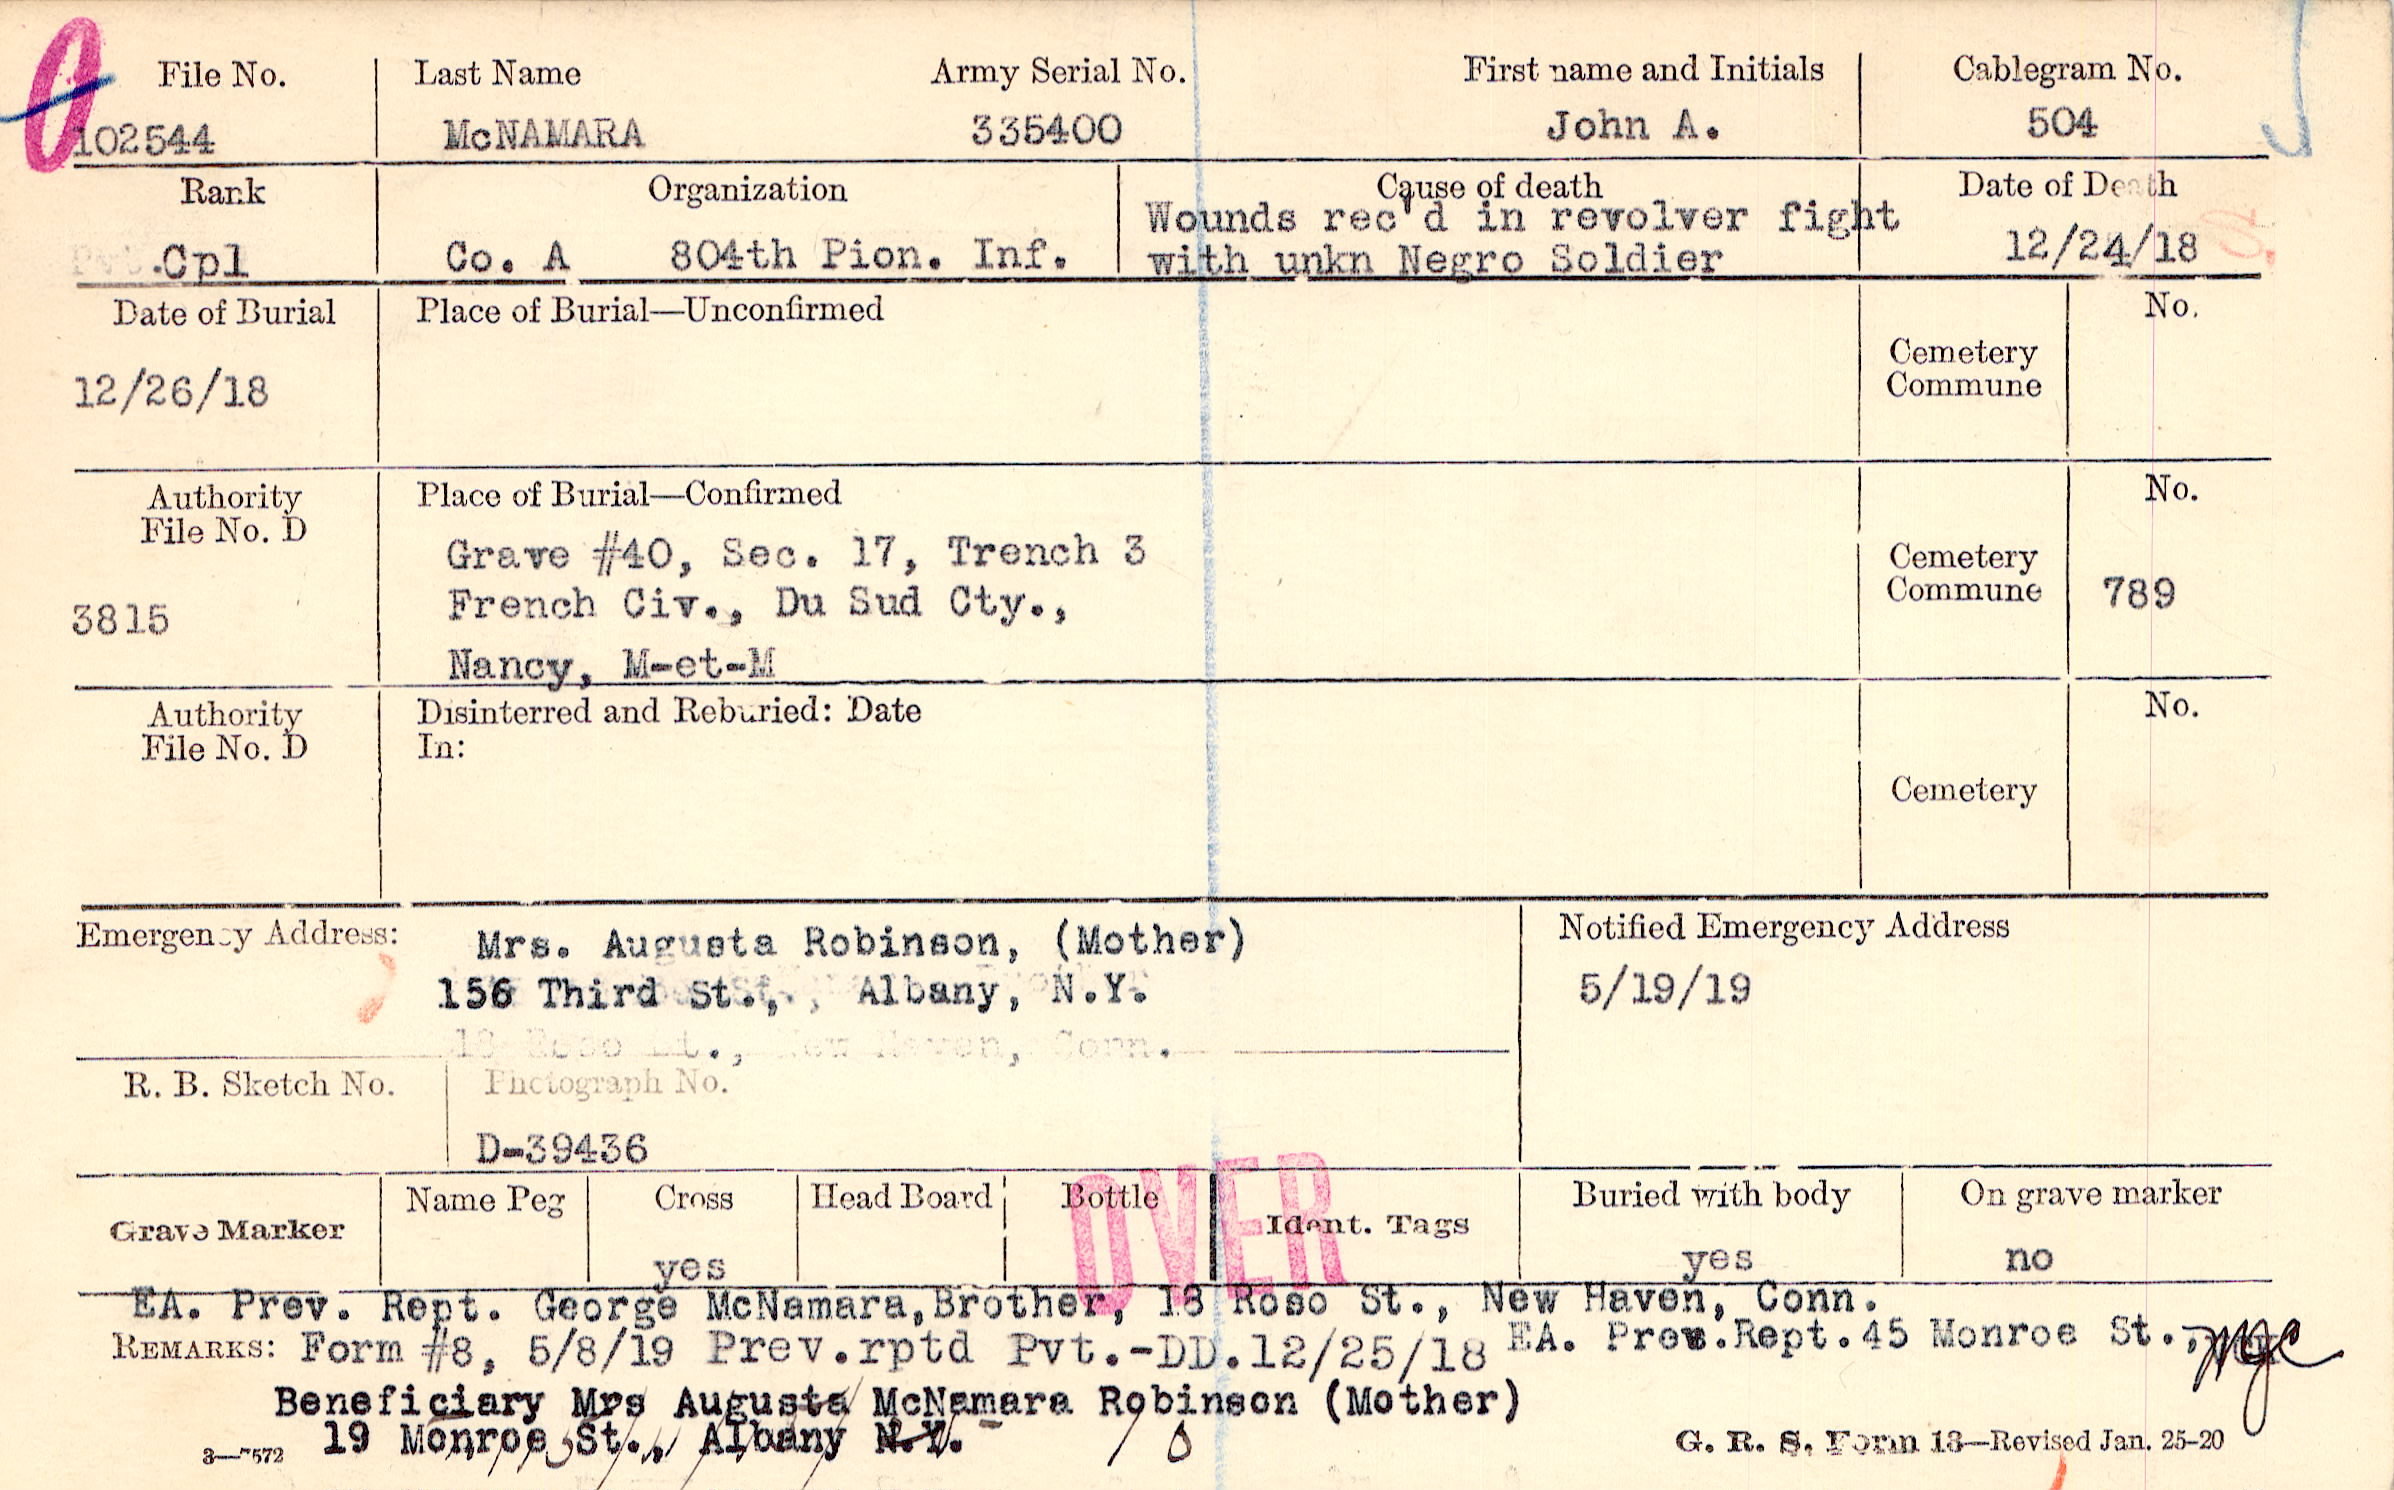 File No. Last Name Army Serial No. First name and Initials Cablegram No.
102544 McNAMARA 335400 John A. 504
Rank Organization Cause of death Date of Death
Cpl Co. A 804th Pion. Inf. Wounds rec'd in revolver fight
with unkn Negro Soldier 12/24/18
Date of Burial Place of Burial—Unconfirmed No.
12/26/18 Cemetery
Commune
Authority Place of Burial—Confirmed No.
File No. D
Grave #40, Sec. 17, Trench 3 Cemetery
3815 French Civ., Du Sud Cty., Commune 789
Nancy, M-et-M
Authority Disinterred and Reburied: Date No.
File No. D In:
Cemetery
Emergency Address: Mrs. Augusta Robinson, (Mother) Notified Emergency Address
156 Third St., Albany, N.Y. 5/19/19
New Haven, Conn.
R. B. Sketch No. Photograph No.
D-39436
Grave Marker Name Peg Cross Head Board Bottle Ident. Tags Buried with body On grave marker
yes yes no
OVER
EA. Prev. Rept. George McNamara,Brother, 18 Roso St., New Haven, Conn.
REMARKS: Form #8, 5/8/19 Prev.rptd Pvt.-DD.12/25/18 EA. Prev.Rept.45 Monroe St.,
Beneficiary Mrs Augusta McNamara Robinson (Mother)
19 Monroe St., Albany N.Y.
3—7572 G. R. S. Form 13—Revised Jan. 25-20